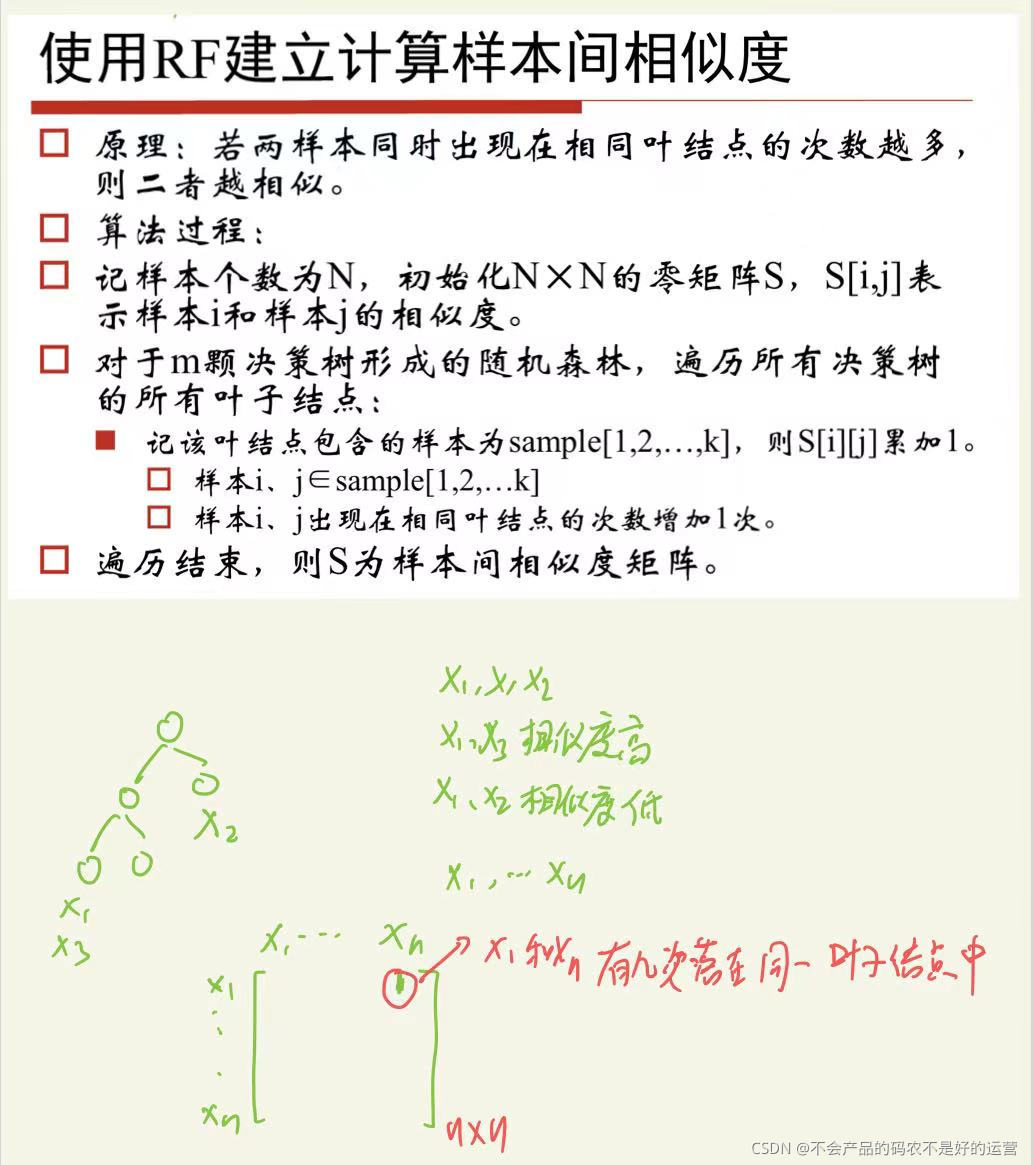 使用RF建立计算样本间相似度
原理：若两样本同时出现在相同叶结点的次数越多，
则二者越相似。
算法过程：
记样本个数为N，初始化N×N的零矩阵S，S[i,j]表
示样本i和样本j的相似度。
对于m颗决策树形成的随机森林，遍历所有决策树
的所有叶子结点：
记该叶结点包含的样本为sample[1,2,…,k]，则S[i][j]累加1。
样本i、j∈sample[1,2,…k]
样本i、j出现在相同叶结点的次数增加1次。
遍历结束，则S为样本间相似度矩阵。
x1,x,x2
x1、x3 相似度高
x1、x2 相似度低
x2
x1,…xn
x1
x3
x1 … xn
x1和xn 有几次落在同一叶子结点中
x1
⋮
xn
n×n
CSDN @不会产品的码农不是好的运营